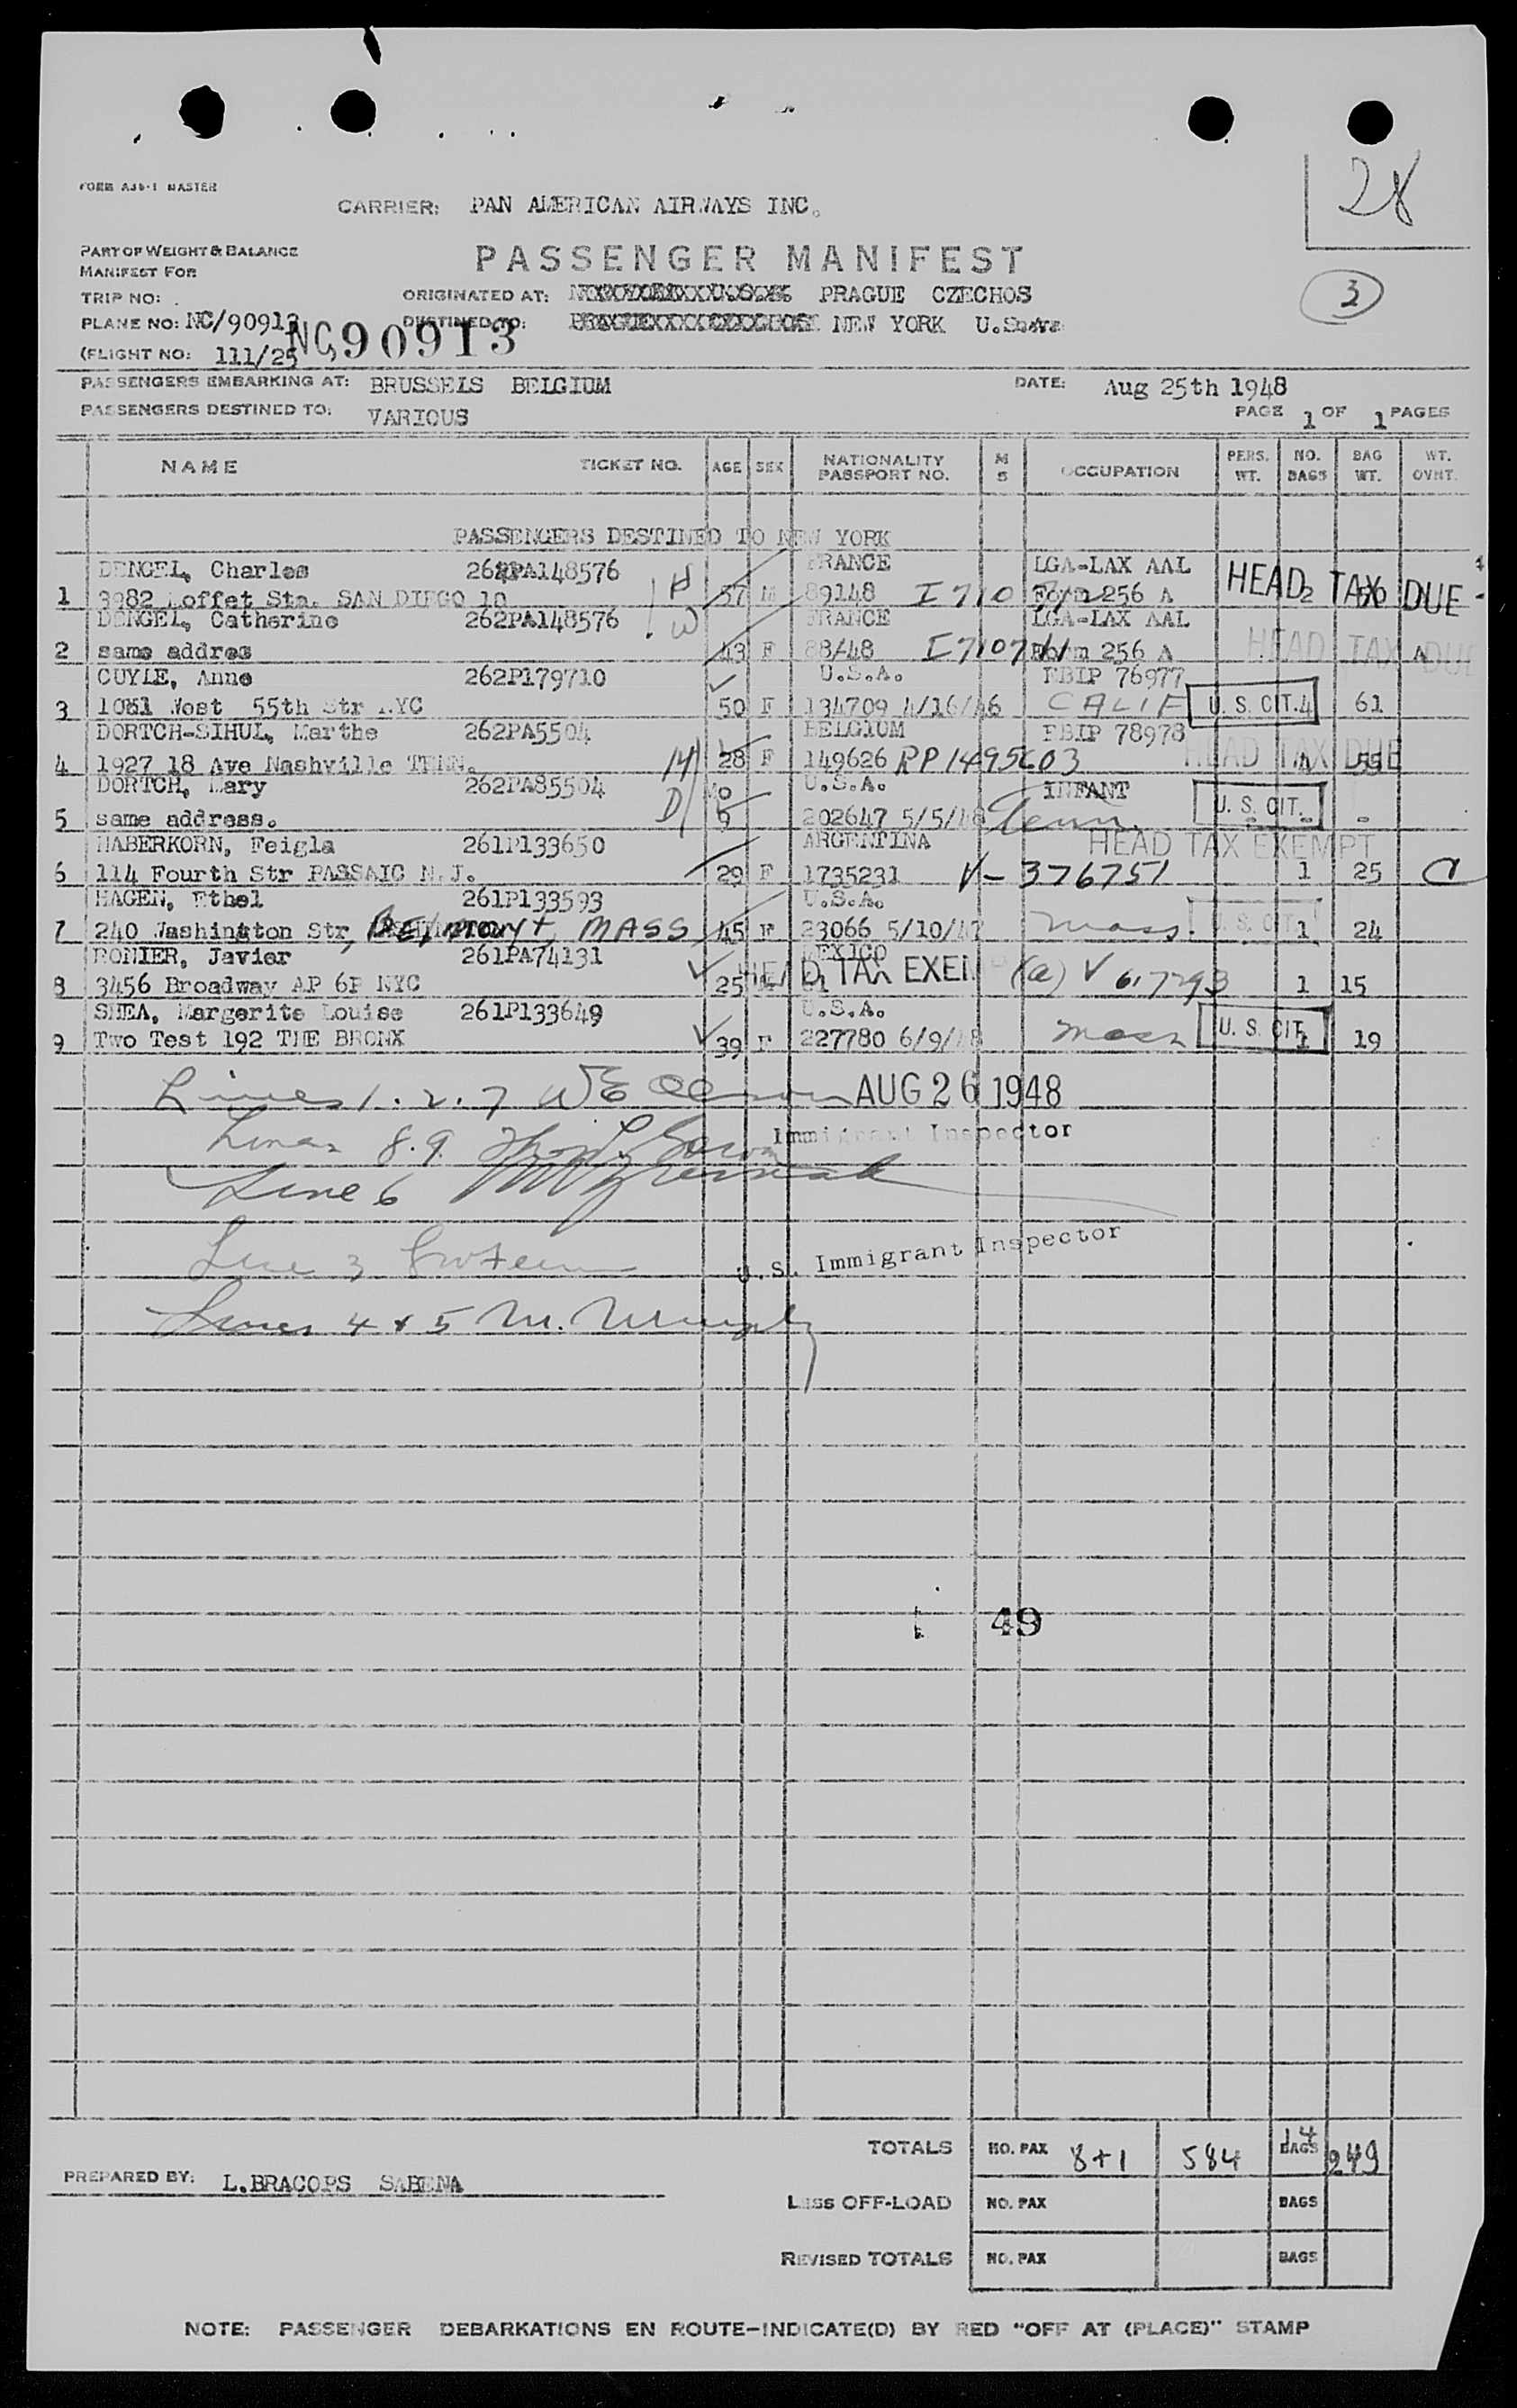 28
FORM AJB-1 MASTER
CARRIER: PAN AMERICAN AIRWAYS INC.
PART OF WEIGHT & BALANCE
MANIFEST FOR
PASSENGER MANIFEST
3
TRIP NO:
ORIGINATED AT: PRAGUE CZECHOS
PLANE NO: NC/90913
DESTINED TO: NEW YORK
NC90913
(FLIGHT NO: 111/25
PASSENGERS EMBARKING AT: BRUSSELS BELGIUM DATE: Aug 25th 1948
PASSENGERS DESTINED TO: VARIOUS PAGE 1 OF 1 PAGES
NAME TICKET NO. AGE SEX NATIONALITY PASSPORT NO. M S OCCUPATION PERS. WT. NO. BAGS BAG WT. WT. OVNT.
PASSENGERS DESTINED TO NEW YORK
DENGEL, Charles 262PA148576 FRANCE LGA-LAX AAL
1 3982 Loffet Sta. SAN DIEGO 10 H 57 M 89148 Form 256 A HEAD TAX DUE 2
DENGEL, Catherine 262PA148576 W FRANCE LGA-LAX AAL
2 same addres 43 F 88/48 I710711 Form 256 A HEAD TAX DUE
CUYLE, Anne 262P179710 U.S.A. EBIP 76977
3 1081 West 55th Str NYC 50 F 134709 4/16/46 CALIF U. S. CIT. 4 61
DORTCH-SIHUL, Marthe 262PA5504 BELGIUM EBIP 78978
4 1927 18 Ave Nashville TENN. M 28 F 149626 RP1495603 HEAD TAX DUE 4 55
DORTCH, Mary 262PA85504 Mo U.S.A. INFANT
5 same address. D 9 202647 5/5/48 Tenn. U. S. CIT. - -
HABERKORN, Feigla 261P133650 ARGENTINA HEAD TAX EXEMPT
6 114 Fourth Str PASSAIC N.J. 29 F 1735231 V-376751 1 25
HAGEN, Ethel 261P133593 U.S.A.
7 240 Washington Str, BELMONT, MASS 45 F 23066 5/10/47 Mass. U. S. CIT. 1 24
RONIER, Javier 261PA74131 MEXICO
8 3456 Broadway AP 6F NYC 25 M HEAD TAX EXEMPT (a) V 617293 1 15
SHEA, Margerite Louise 261P133649 U.S.A.
9 Two Test 192 THE BRONX 39 F 227780 6/9/48 Mass U. S. CIT. 1 19
Lines 1. 2. 7 AUG 26 1948
Immigrant Inspector
Lines 8.9.
Line 6
U.S. Immigrant Inspector
Line 3
Lines 4 & 5 M. Murphy
49
TOTALS NO. PAX 8+1 584 BAGS 14 249
PREPARED BY: L.BRACOPS SABENA
Less OFF-LOAD NO. PAX BAGS
REVISED TOTALS NO. PAX BAGS
NOTE: PASSENGER DEBARKATIONS EN ROUTE-INDICATE(D) BY RED "OFF AT (PLACE)" STAMP